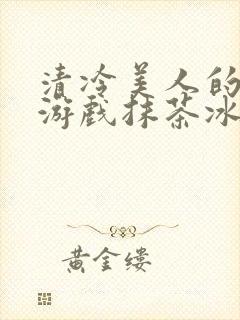 清冷美人的
游戏抹茶冰
黄金缕